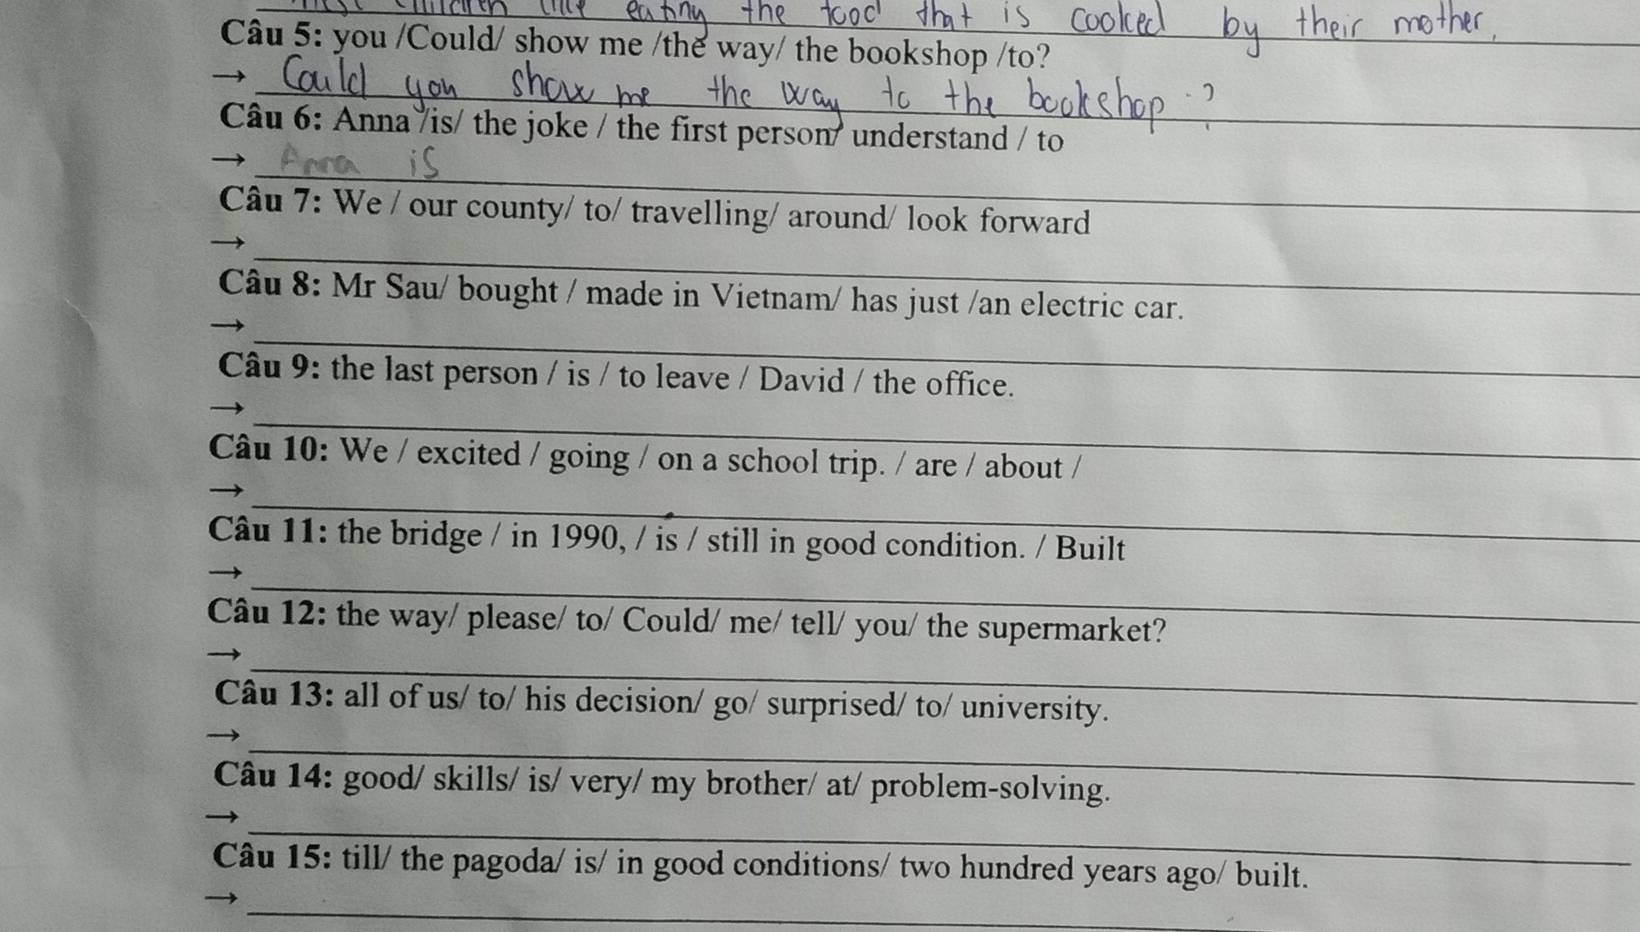 children like eating the food that is cooked by their mother.
Câu 5: you /Could/ show me /the way/ the bookshop /to?
→ Could you show me the way to the bookshop ?
Câu 6: Anna /is/ the joke / the first person/ understand / to
→ Anna is
Câu 7: We / our county/ to/ travelling/ around/ look forward
→
Câu 8: Mr Sau/ bought / made in Vietnam/ has just /an electric car.
→
Câu 9: the last person / is / to leave / David / the office.
→
Câu 10: We / excited / going / on a school trip. / are / about /
→
Câu 11: the bridge / in 1990, / is / still in good condition. / Built
→
Câu 12: the way/ please/ to/ Could/ me/ tell/ you/ the supermarket?
→
Câu 13: all of us/ to/ his decision/ go/ surprised/ to/ university.
→
Câu 14: good/ skills/ is/ very/ my brother/ at/ problem-solving.
→
Câu 15: till/ the pagoda/ is/ in good conditions/ two hundred years ago/ built.
→